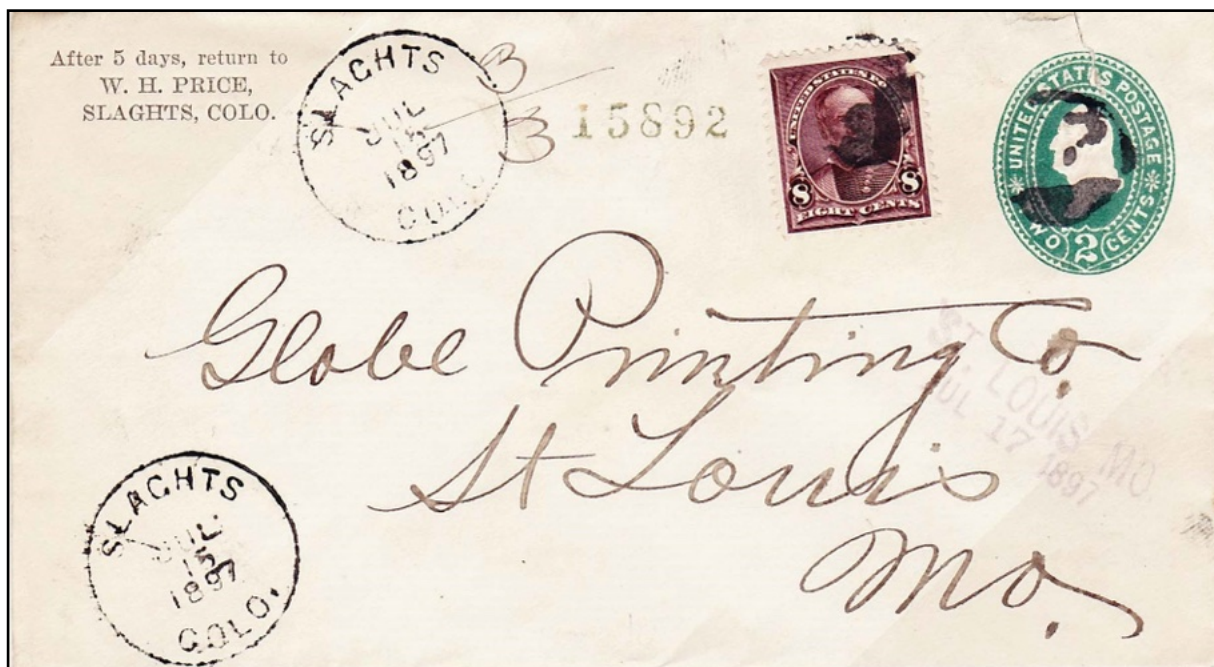 After 5 days, return to
W. H. PRICE,
SLAGHTS, COLO.
SLAGHTS
JUL
15
1897
COLO.
3
3
15892
UNITED STATES PO
8 8
EIGHT CENTS
UNITED STATES POSTAGE
TWO 2 CENTS
Globe Printing Co.
St Louis
Mo.
ST. LOUIS, MO.
JUL 17 1897
SLAGHTS
JUL
15
1897
COLO.